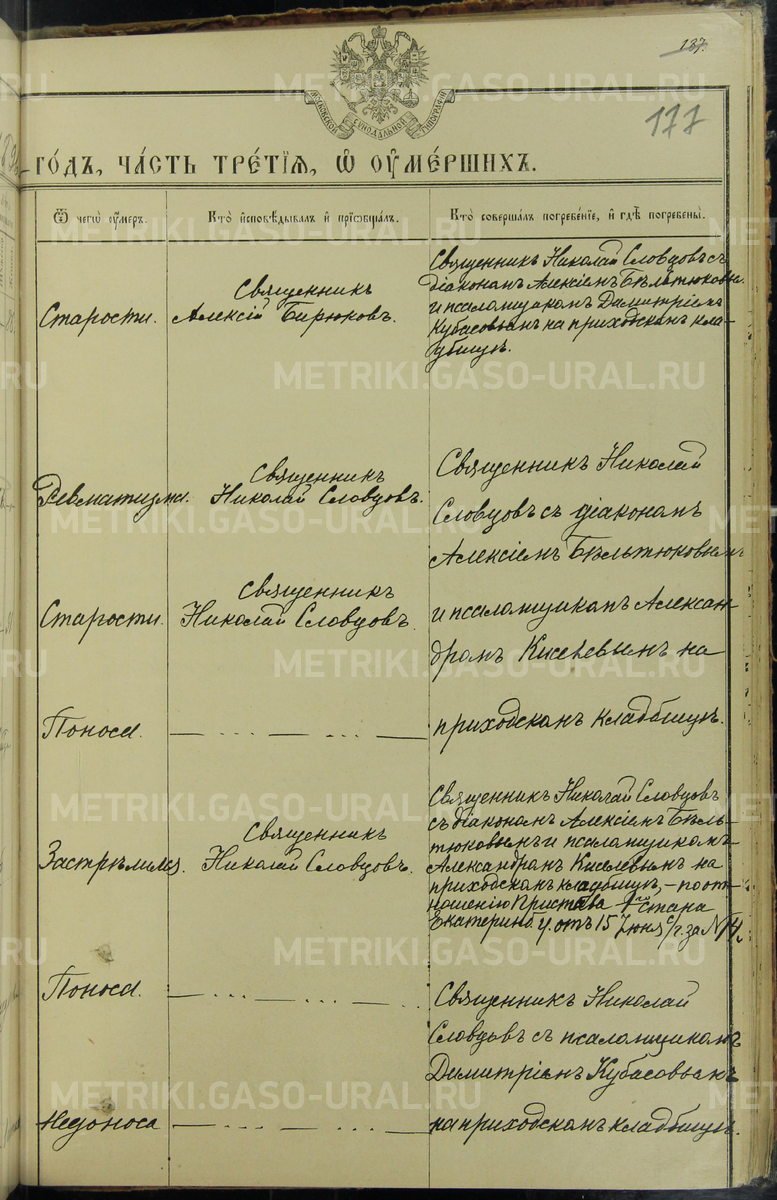 137.
177
МОСКОВСКОЙ СѴНОДАЛЬНОЙ ТИПОГРАФІИ
ГО́ДЪ, ЧА́СТЬ ТРЕ́ТІѦ, Ѽ ОУ҆МЕ́РШИХЪ.
Ѿ чегѡ̀ ᲂу҆́меръ.
Кто̀ и҆сповѣ́дывалъ и҆ прїѡбща́лъ.
Кто̀ соверша́лъ погребе́нїе, и҆ гдѣ̀ погребены̀.
Старости.
Священникъ
Алексій Бирюковъ.
Священникъ Николай Словцовъ съ
діакономъ Алексіемъ Бѣльтюковы
и псаломщикомъ Димитріемъ
Кубасовымъ на приходскомъ кла-
дбищѣ.
Ревматизма.
Священникъ
Николай Словцовъ.
Священникъ Николай
Словцовъ съ діакономъ
Алексіемъ Бѣльтюковымъ
Старости
Священникъ
Николай Словцовъ.
и псаломщикомъ Алексан-
дромъ Киселевымъ на
Поноса.
приходскомъ кладбищѣ.
Застрѣлился.
Священникъ
Николай Словцовъ.
Священникъ Николай Словцовъ
съ діакономъ Алексіемъ Бѣль-
тюковымъ и псаломщикомъ
Александромъ Киселевымъ на
приходскомъ кладбищѣ, – по от-
ношенію Пристава 1го стана
Екатеринб. у. отъ 15 Іюня с/г. за №
Поноса.
Священникъ Николай
Словцовъ съ псаломщикомъ
Димитріемъ Кубасовымъ
Недоноса
на приходскомъ кладбищѣ.
METRIKI.GASO-URAL.RU